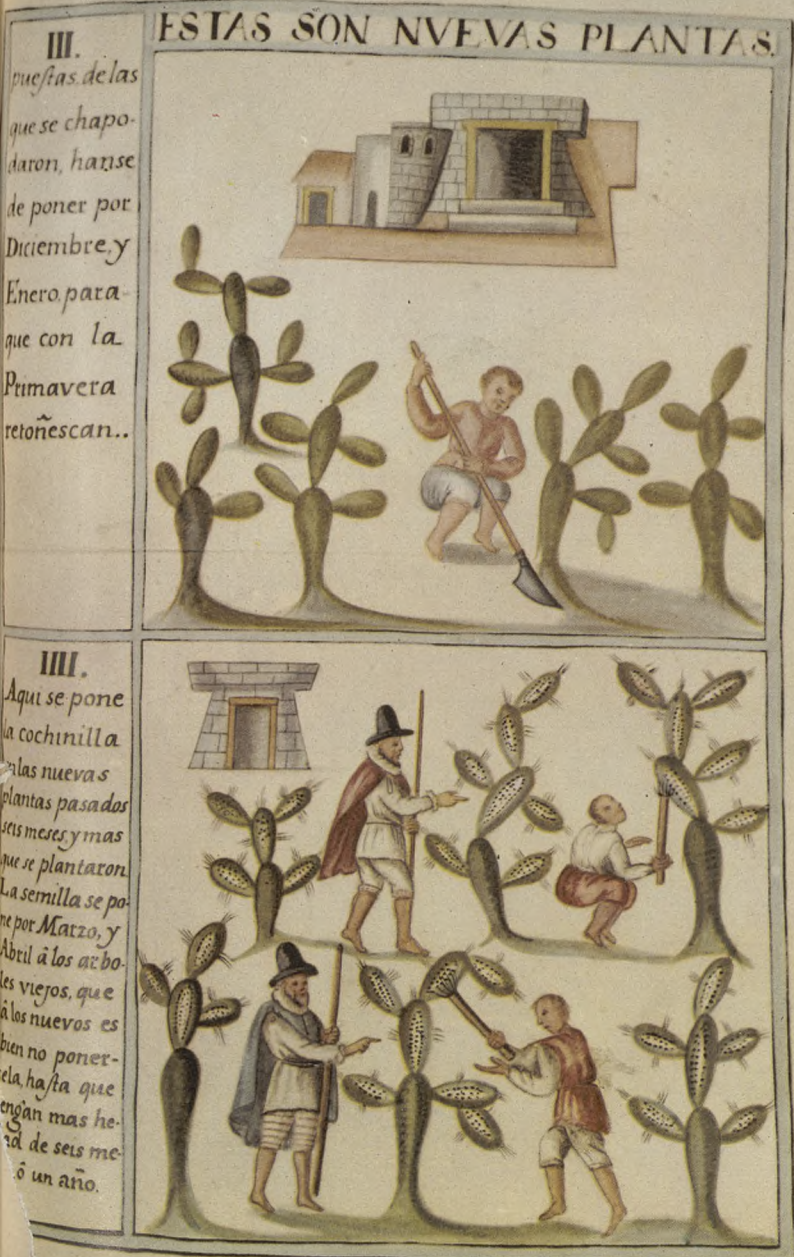 ESTAS SON NVEVAS PLANTAS.
III.
puestas. de las
que se chapo-
daron, hanse
de poner por
Diciembre, y
Enero. para
que con la
Primavera
retoñescan..
IIII.
Aqui se pone
la cochinilla
las nuevas
plantas pasados
seis meses, y mas
que se plantaron
La semilla se po-
ne por Marzo, y
Abril â los arbo-
les viejos, que
â los nuevos es
bien no poner-
sela, hasta que
engan mas he-
ad de seis me-
ô un año.